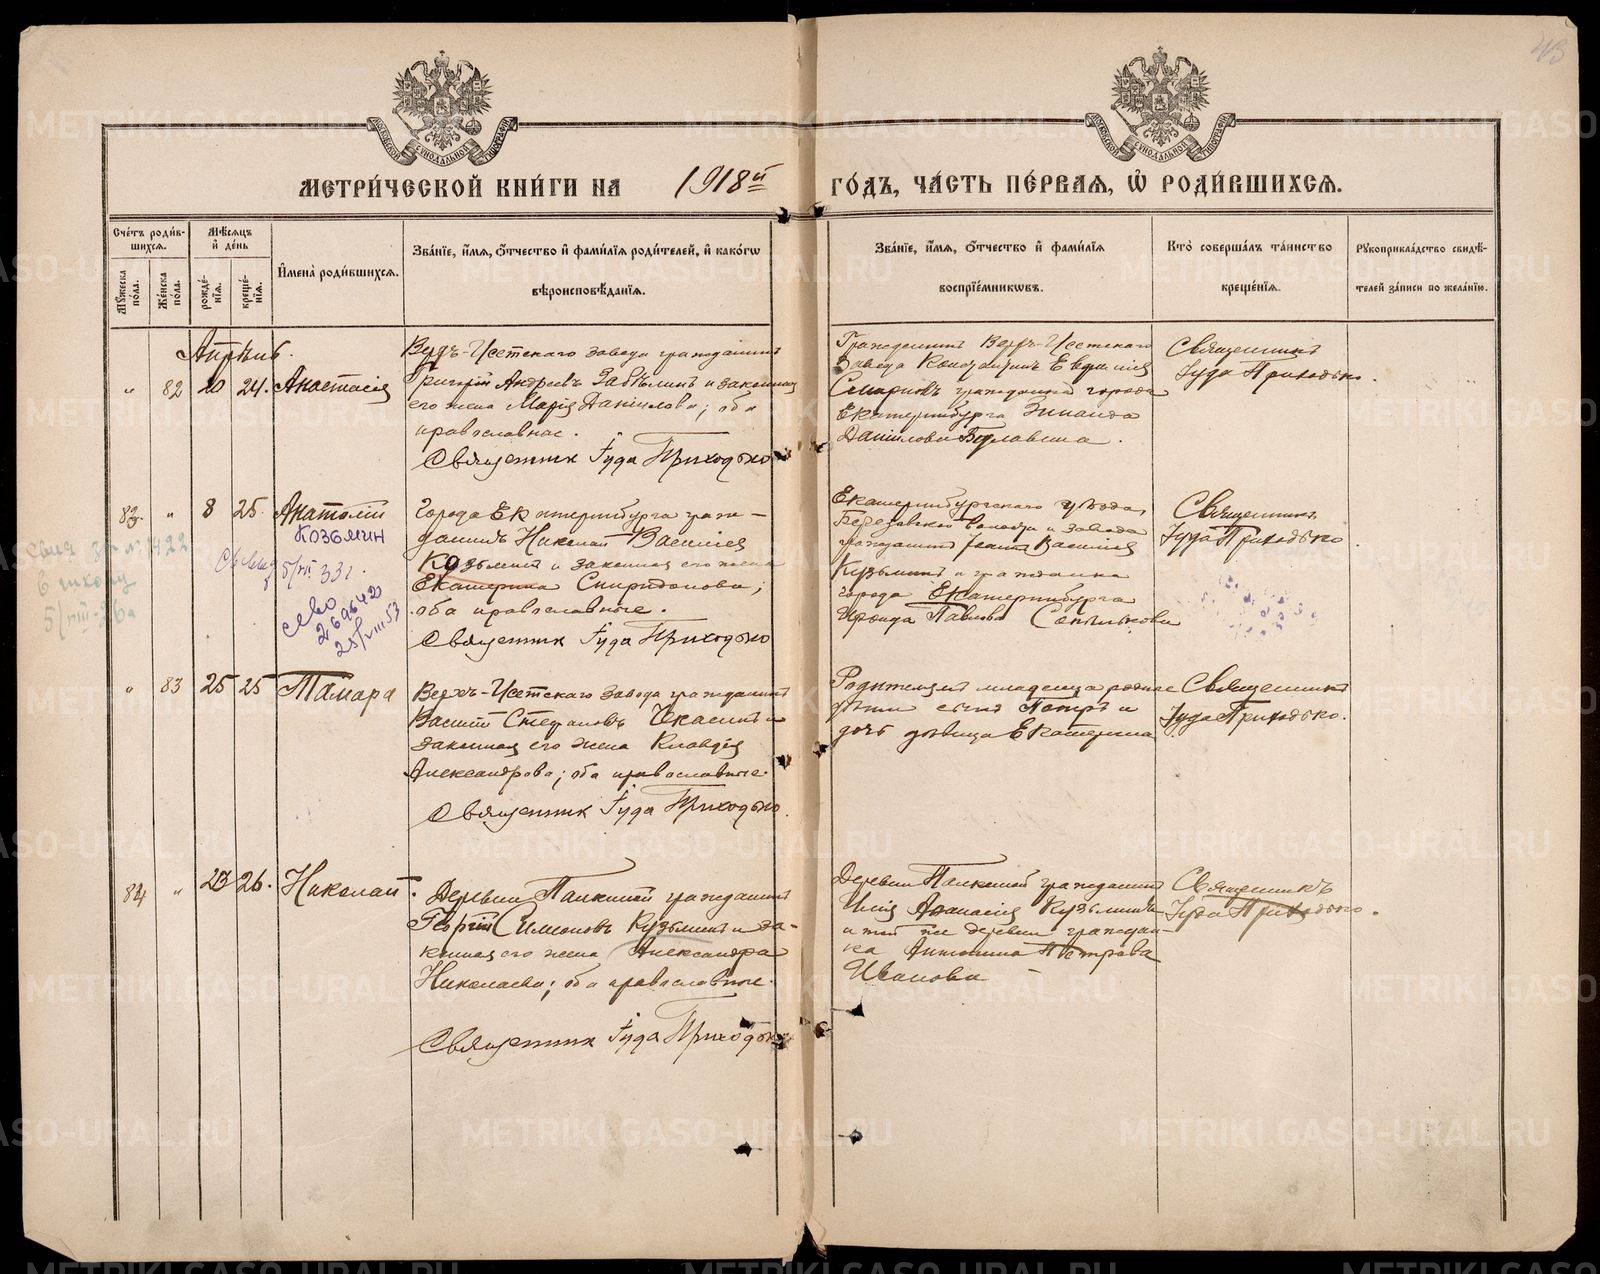 43
МОСКОВСКОЙ СѴНОДАЛЬНОЙ ТИПОГРАФІИ
МОСКОВСКОЙ СѴНОДАЛЬНОЙ ТИПОГРАФІИ
МЕТРИ́ЧЕСКОЙ КНИ́ГИ НА 1918й ГО́ДЪ, ЧА́СТЬ ПЕ́РВАЯ, Ѡ҆ РОДИ́ВШИХСЯ.
Сче́тъ роди́в-
шихся.
Мꙋ́жеска по́ла.
Же́нска по́ла.
Мѣ́сяцъ
и҆ де́нь
рожде́-
нїя.
креще́-
нїя.
И҆мена̀ роди́вшихся.
Зва́нїе, и҆́мя, ѻ҆́тчество и҆ фами́лїя роди́телей, и҆ како́гѡ
вѣроисповѣ́данїя.
Зва́нїе, и҆́мя, ѻ҆́тчество и҆ фами́лїя
воспрїе́мникѡвъ.
Кто̀ соверша́лъ та́инство
креще́нїя.
Рꙋкоприкла́дство свидѣ́-
телей за́писи по жела́нїю.
Апрѣль.
" 82 20 24. Анастасія
Верхъ-Исетскаго завода гражданинъ
Григорій Андреевъ Забѣлинъ и законная
его жена Марія Даніилова; оба
православные.
Священник Іуда Приходько
Гражданинъ Верх-Исетскаго
завода Константинъ Евдиміев
Смирновъ гражданка города
Екатеринбурга Зинаида
Даніилова
Священникъ
Іуда Приходько.
83. " 8 25. Анатолій
Козьмин
5/VII 33г.
269642
25/VIII 53
в школу
5/VIII-36г
Города Екатеринбурга граж-
данинъ Николай Васильев
Кузьминъ и законная его жена
Екатерина Спиридонова;
оба православные.
Священник Іуда Приходько
Екатеринбургскаго уѣзда,
Березовской волости и завода
гражданинъ Іоаннъ Васильев
Кузьминъ и гражданка
города Екатеринбурга
Павлова
Священникъ
Іуда Приходько
" 83 25 25 Тамара
Верхъ-Исетскаго завода гражданинъ
Василій Степановъ Чекасинъ и
законная его жена Клавдія
Александрова; оба православные.
Священник Іуда Приходько.
Родителями младенца родные
дѣти сынъ Петръ и
дочь дѣвица Екатерина
Священникъ
Іуда Приходько.
84 " 23 26. Николай.
Деревни Палкиной гражданинъ
Георгій Симеоновъ Кузьминъ и за-
конная его жена Александра
Николаева; оба православные.
Священник Іуда Приходько
Деревни Палкиной гражданинъ
Илія Аѳанасіев Кузьминъ
и той же деревни граждан-
ка Антонина Петрова
Иванова
Священникъ
Іуда Приходько.
METRIKI.GASO-URAL.RU